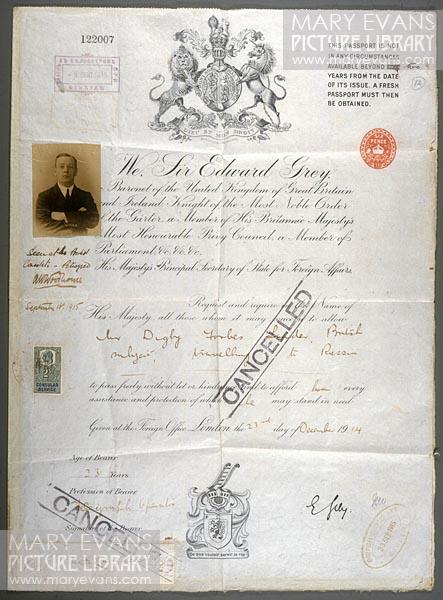 MARY EVANS
PICTURE LIBRARY
122007
THIS PASSPORT IS NOT
IN ANY CIRCUMSTANCES
AVAILABLE BEYOND
YEARS FROM THE DATE
OF ITS ISSUE. A FRESH
PASSPORT MUST THEN
BE OBTAINED.
DIEU ET MON DROIT
SIX PENCE
We, Sir Edward Grey,
a Baronet of the United Kingdom of Great Britain
and Ireland, Knight of the Most Noble Order
of the Garter, a Member of His Britannic Majesty's
Most Honourable Privy Council, a Member of
Parliament, &c. &c. &c.
His Majesty's Principal Secretary of State for Foreign Affairs,
Seen at the British
Consulate
September 1st 1915
Request and require in the Name of
His Majesty, all those whom it may concern to allow
Mr Digby Forbes British
subject, travelling to Russia
CONSULAR
SERVICE
CANCELLED
to pass freely without let or hindrance, and to afford him every
assistance and protection of which he may stand in need
Given at the Foreign Office, London, the 23rd day of December 1914
Age of Bearer
23 Years
Profession of Bearer
Signature of Bearer
CANCELLED
E Grey.
MARY EVANS
PICTURE LIBRARY
www.maryevans.com
MARY EVANS
PICTURE LIBRARY
www.maryevans.com